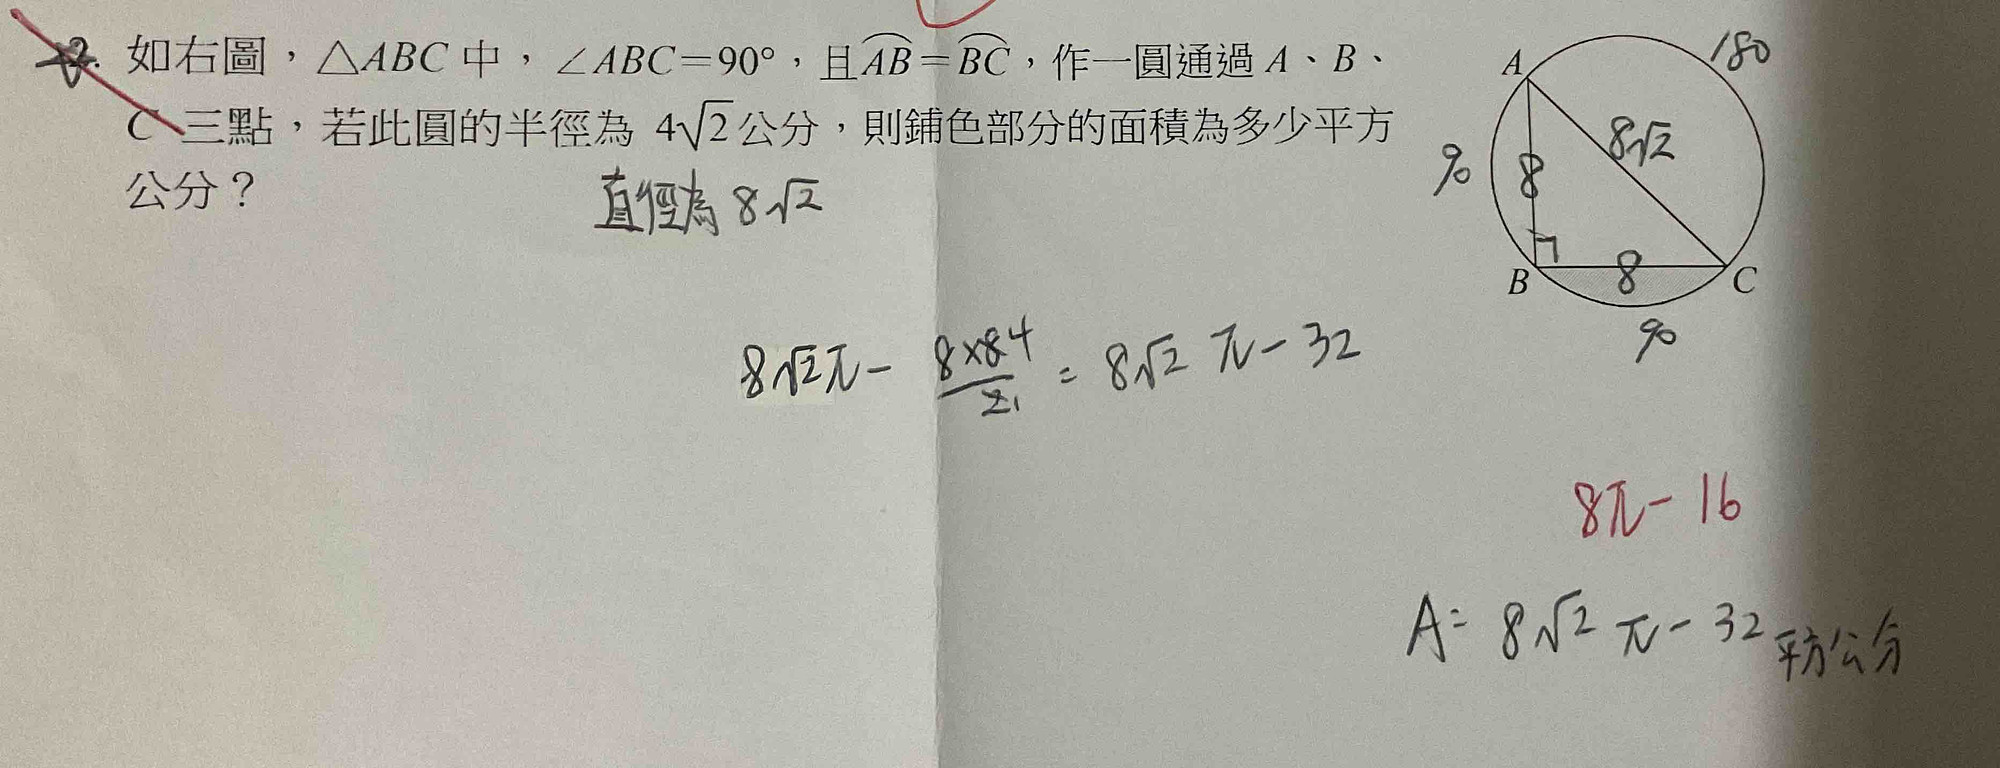 2. 如右圖，△ABC 中，∠ABC＝90°，且AB＝BC，作一圓通過 A、B、
C 三點，若此圓的半徑為 4√2公分，則鋪色部分的面積為多少平方
公分？
直徑為 8√2
A
180
8√2
90
8
B
8
C
90
8√2π − 8×8 4 / 2 1 = 8√2 π − 32
8π − 16
A = 8√2 π − 32 平方公分